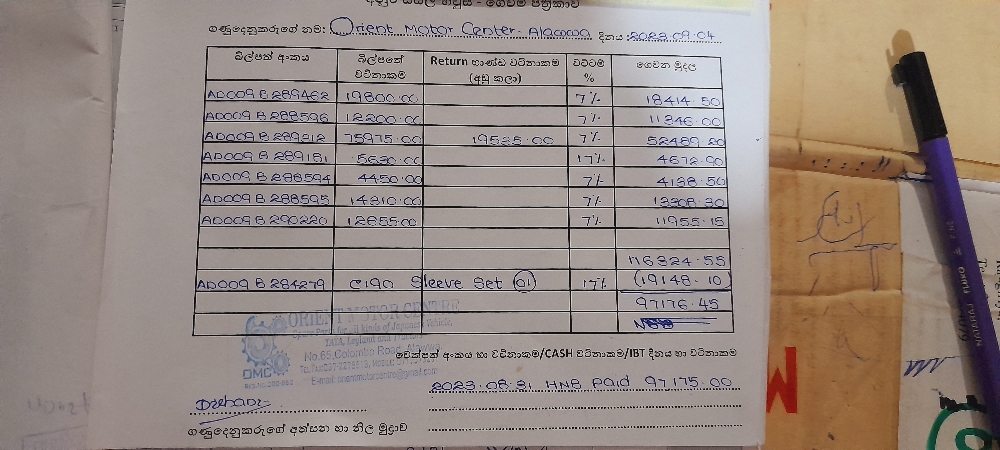 ගණුදෙනුකරුගේ නම: Orient Motor Center. Alawwa දිනය: 2023.09.04
බිල්පත් අංකය බිල්පතේ වටිනාකම Return භාණ්ඩ වටිනාකම (අඩු කලා) වට්ටම % ගෙවන මුදල
AD009 B 289462 19800.00 7% 18414.50
AD009 B 288596 12200.00 7% 11346.00
AD009 B 289212 75975.00 19535.00 7% 52489.20
AD009 B 289151 5630.00 17% 4672.90
AD009 B 288594 4450.00 7% 4138.50
AD009 B 288595 14310.00 7% 13308.30
AD009 B 290220 12855.00 7% 11955.15
116324.55
AD009 B 284279 C190 Sleeve Set 01 17% (19148.10
97176.45
ORIENT MOTOR CENTRE
TATA, Leyland and
No.65, Colombo Road, Alawwa.
OMC
චෙක්පත් අංකය හා වටිනාකම/CASH වටිනාකම/IBT දිනය හා වටිනාකම
2023.08.31 HNB Paid 97175.00
ගණුදෙනුකරුගේ අත්සන හා නිල මුද්‍රාව